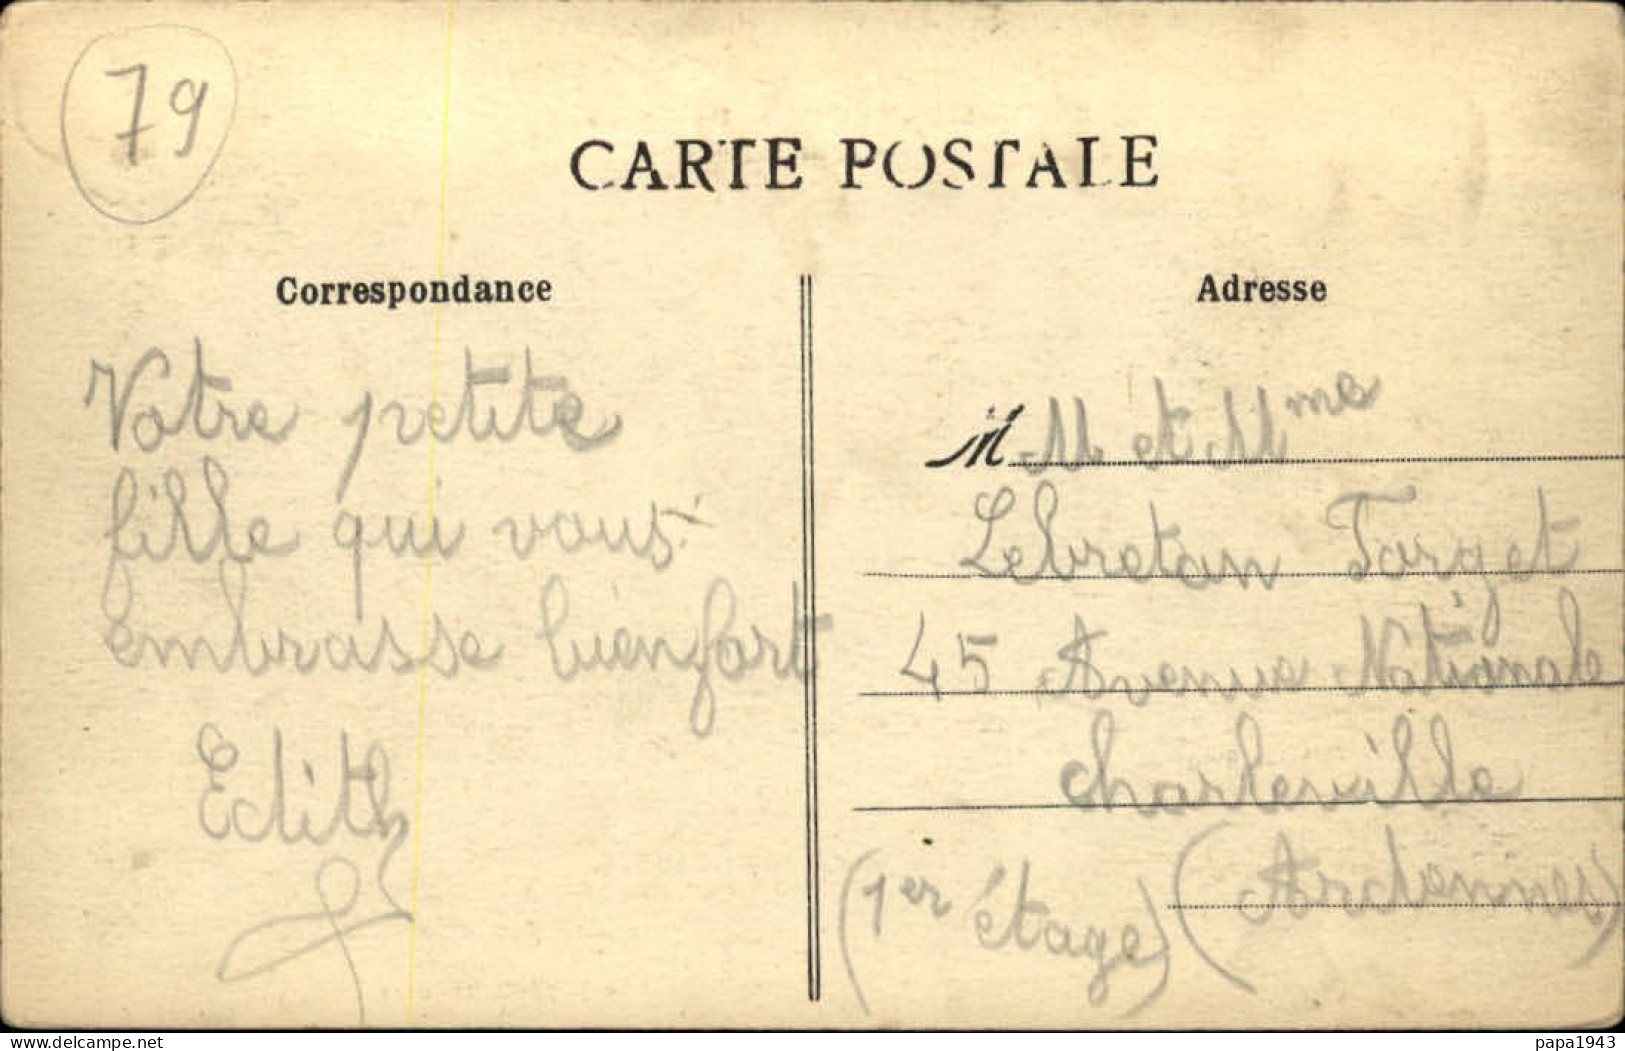 79
CARTE POSTALE
Correspondance
Votre petite
fille qui vous
embrasse bien fort
Edith
Adresse
M M et Mme
Lebretan Target
45 Avenue Nationale
Charleville
(1er étage) (Ardennes)
delcampe.net
papa1943